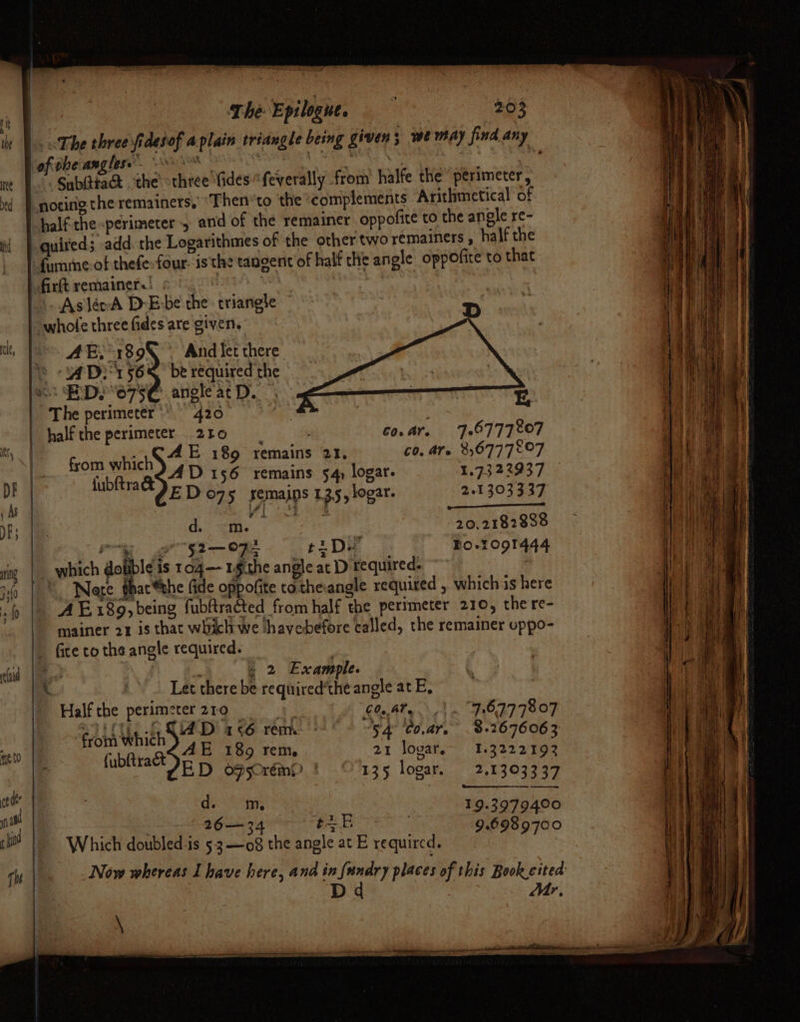 The Epilogue. 203
The three sides of a plain triangle being given; we may find any
of the angles.
Subſtract the three ſides ſeverally from halfe the perimeter,
noting the remainers. Then to the complements Arithmetical of
half the perimeter, and of the remainer oppoſite to the angle re-
quired; add the Logarithmes of the other two remainers, half the
ſumme of theſe four is the tangent of half the angle oppoſite to that
firſt remainer.
As let A D E be the triangle
whoſe three ſides are given.
AE, 189 And let there
AD, 156 be required the
ED, 075 angle at D.
D
A
E
The perimeter 420
half the perimeter 210 co. ar. 7.6777807
from which ſubſtract
AE 189 remains 21. co. ar. 8,6777807
AD 156 remains 54, logar. 1.7323937
ED 075 remains 135, logar. 2.1303337
d. m. 20.2182888
52—07½ t½D 10.1091444
which double is 104—15 the angle at D required.
Note that the ſide oppoſite to the angle required, which is here
AE 189, being ſubſtracted from half the perimeter 210, the re-
mainer 21 is that which we have before called, the remainer oppo-
ſite to the angle required.
2 Example.
Let there be required the angle at E,
Half the perimeter 210 co. ar. 7.6777807
from which ſubſtract
AD 156 rem. 54 co.ar. 8.2676063
AE 189 rem. 21 logar. 1.3222193
ED 075 rem. 135 logar. 2,1303337
d. m. 19.3979400
26—34 t½E 9.6989700
Which doubled is 53—08 the angle at E required.
Now whereas I have here, and in ſundry places of this Book cited
D d Mr.